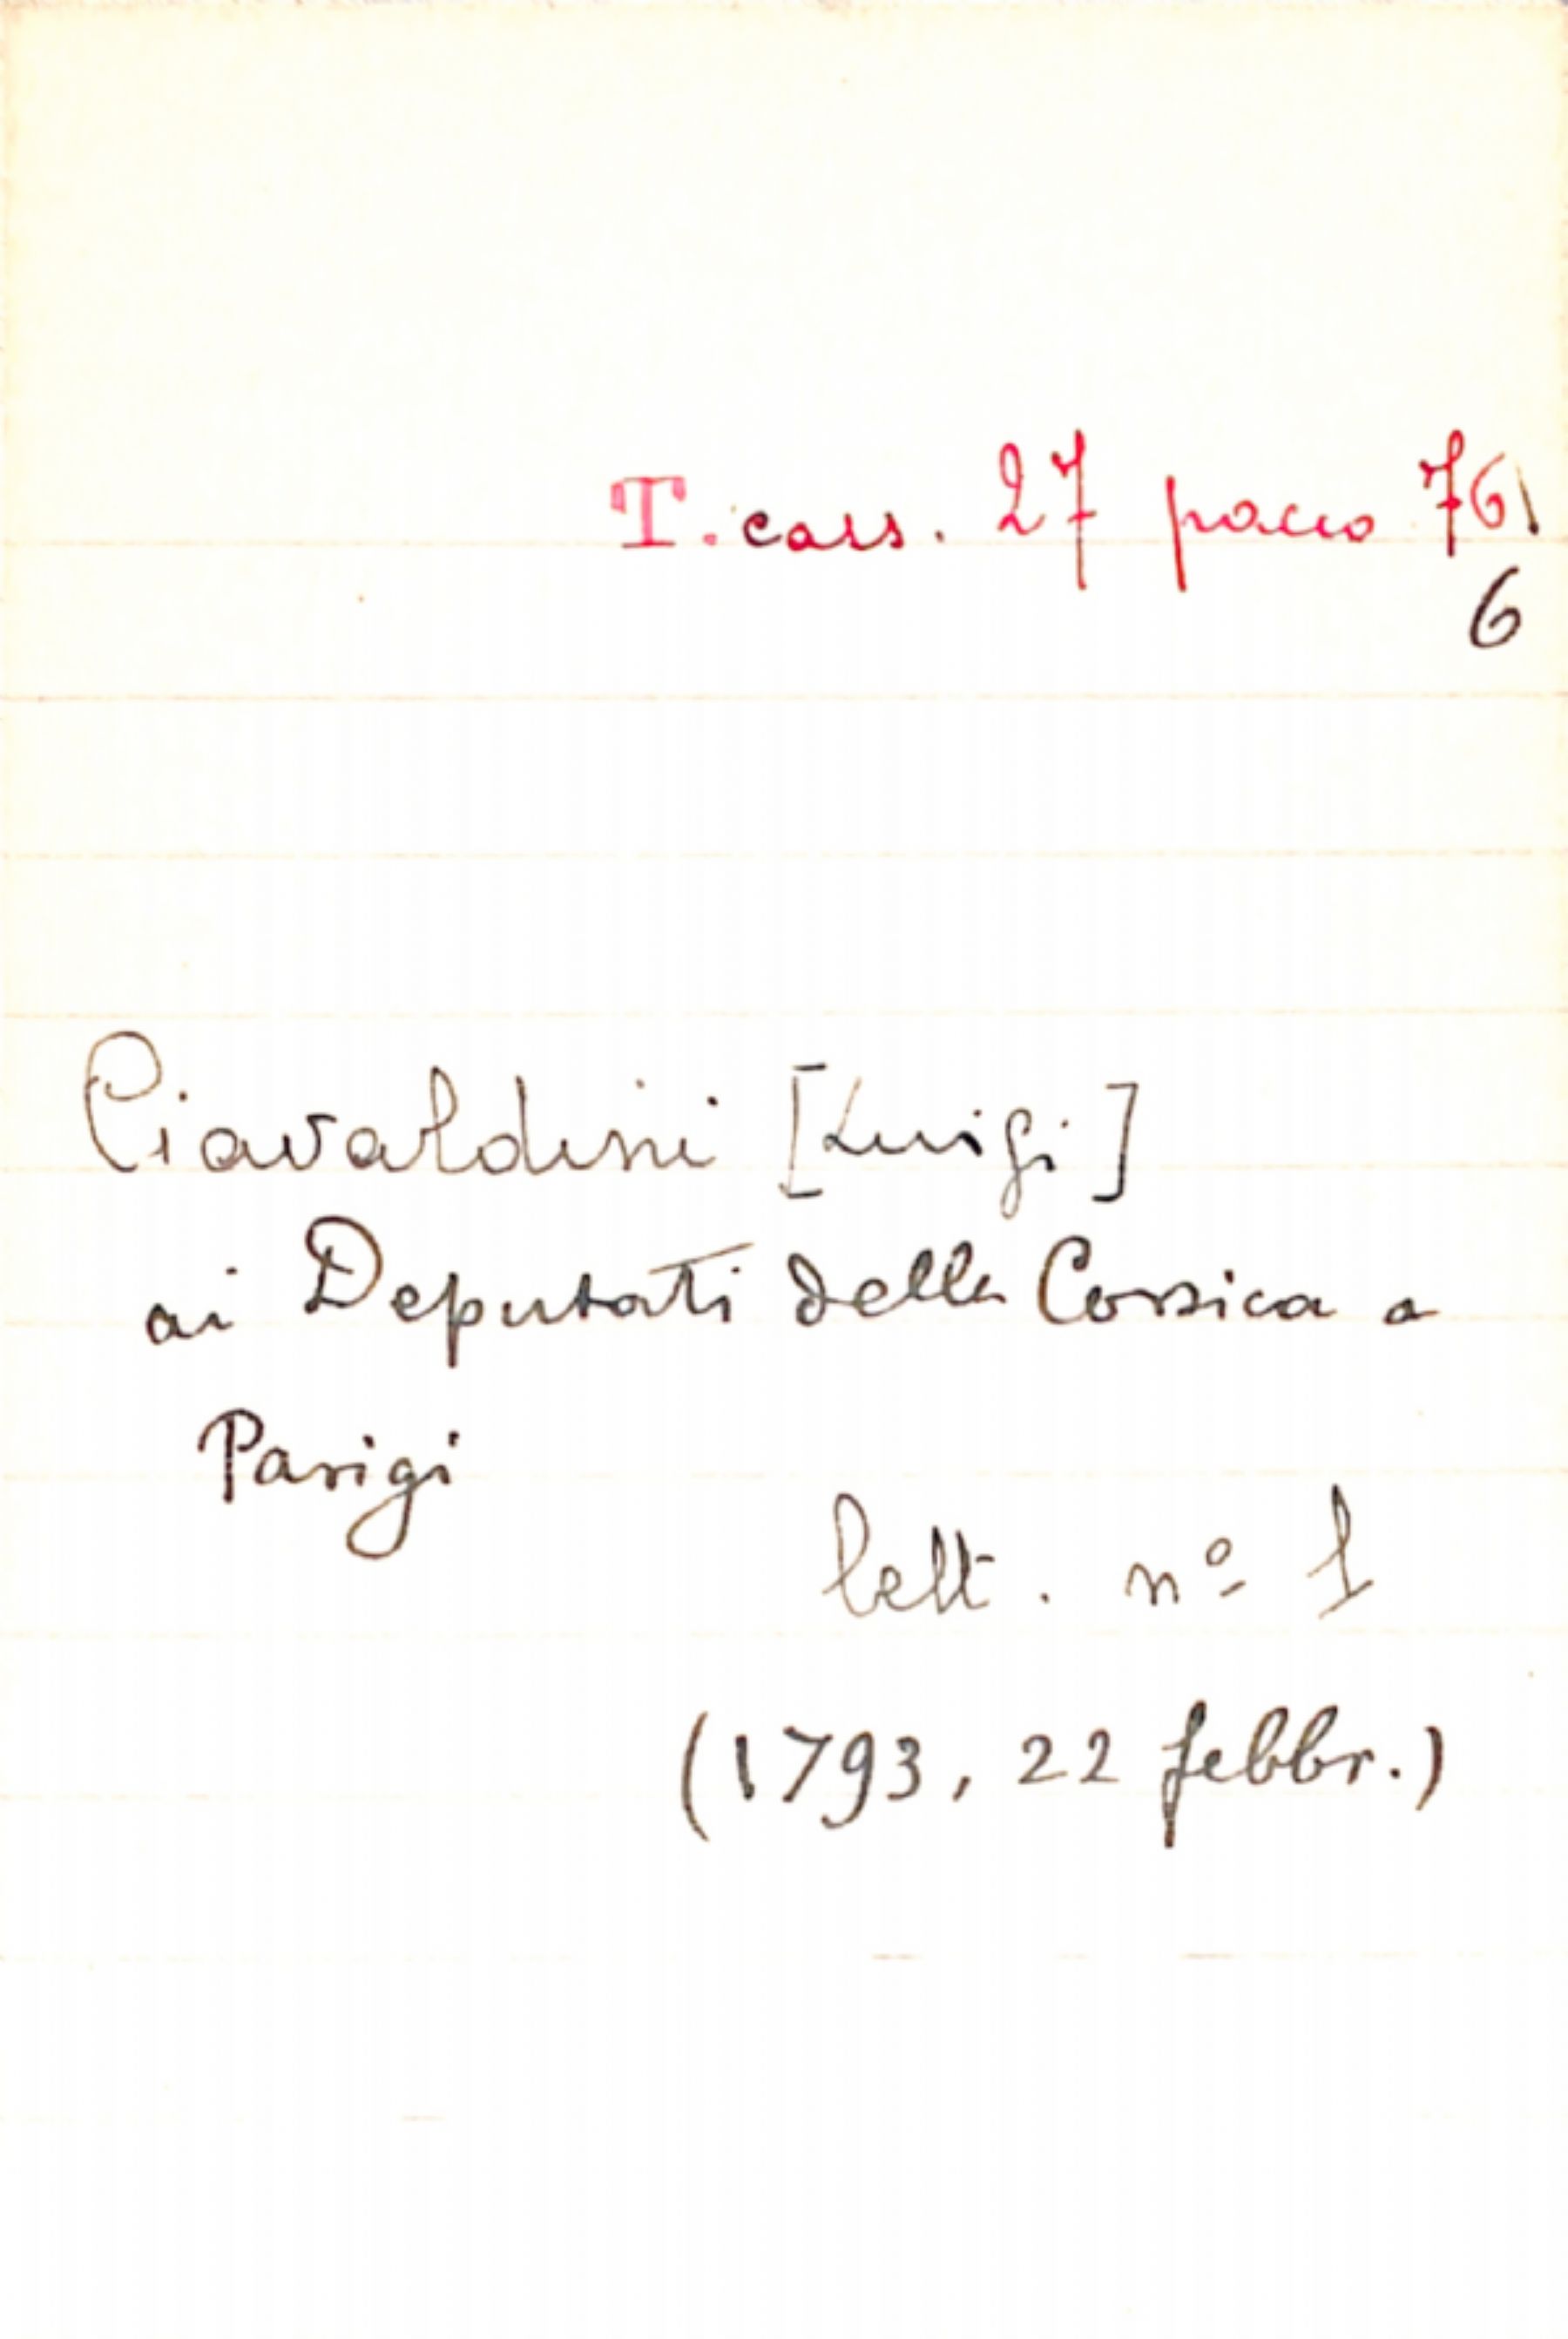 T. cass. 27 pacco 76\
6
Ciavaldini [Luigi]
ai Deputati della Corsica a
Parigi
lett. nº 1
(1793, 22 febbr.)